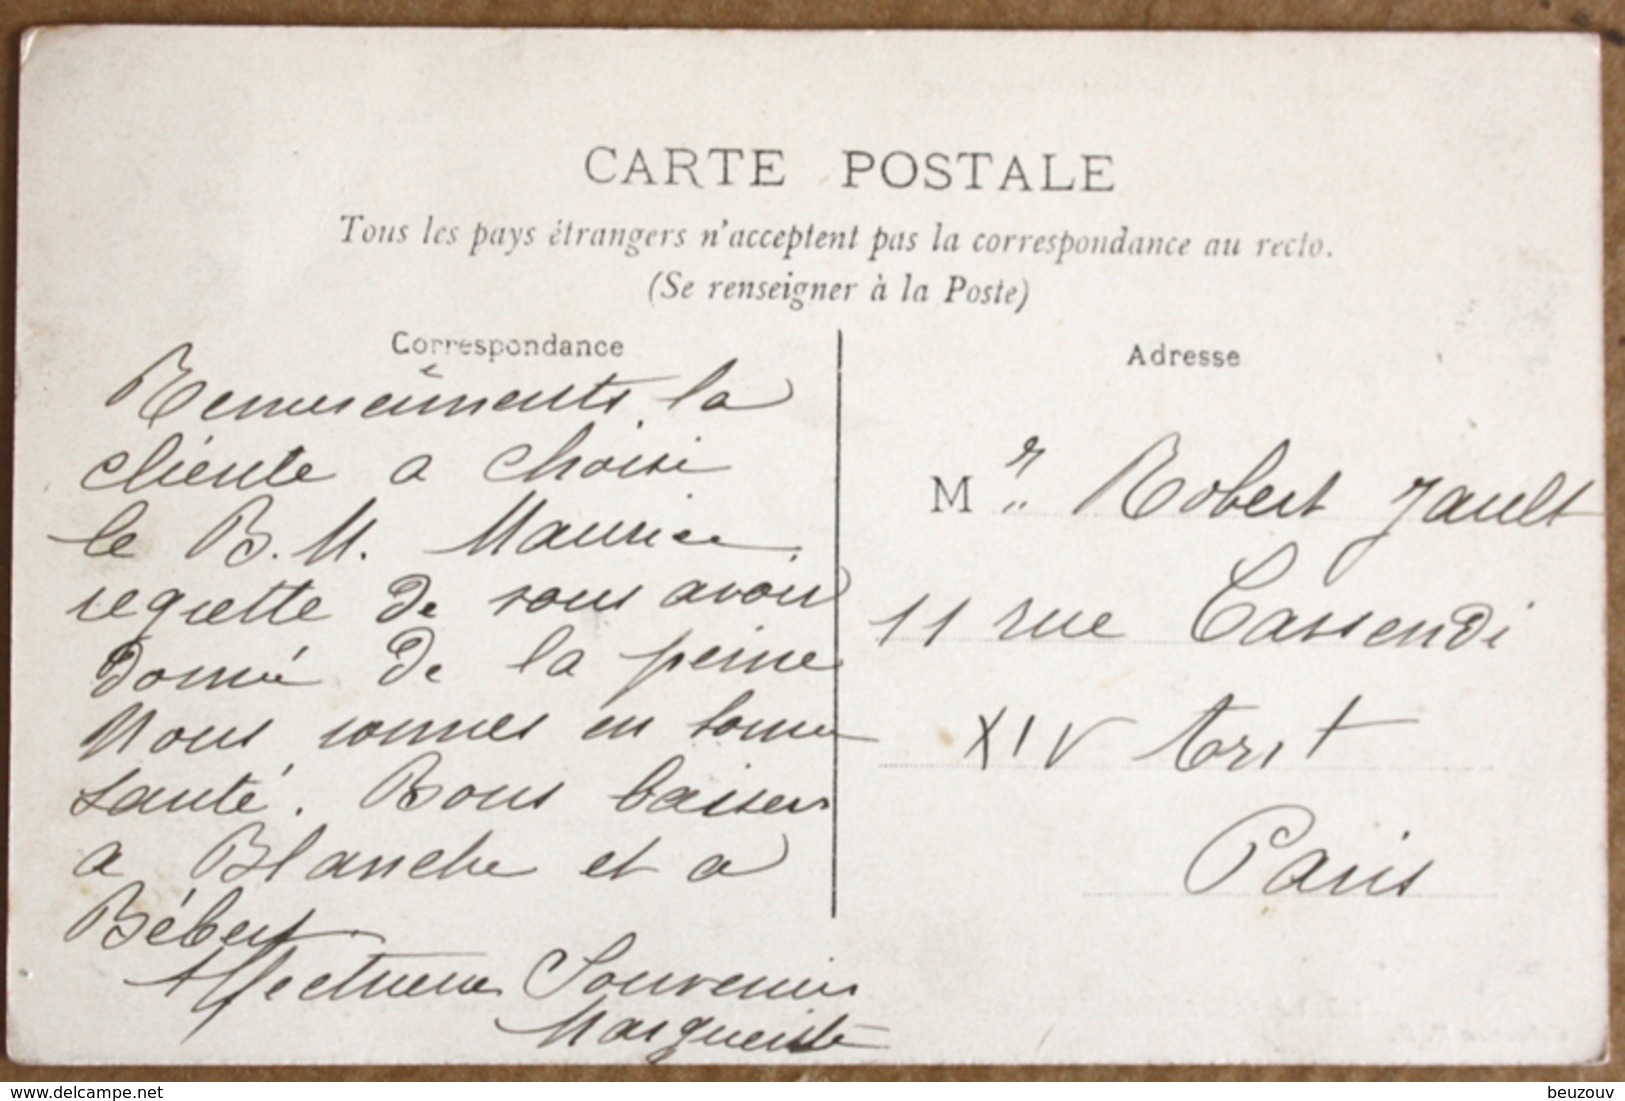 CARTE POSTALE
Tous les pays étrangers n'acceptent pas la correspondance au recto.
(Se renseigner à la Poste)
Correspondance
Remerciements la
cliente a choisi
le B. M. Maurice
regrette de vous avoir
donné de la peine
Nous sommes en bonne
santé. Bons baisers
a Blanche et a
Bébert.
Affectueux Souvenirs
Marguerite
Adresse
Mr. Robert Jault
11 rue Gassendi
XIV Arrt
Paris
delcampe.net
beuzouv